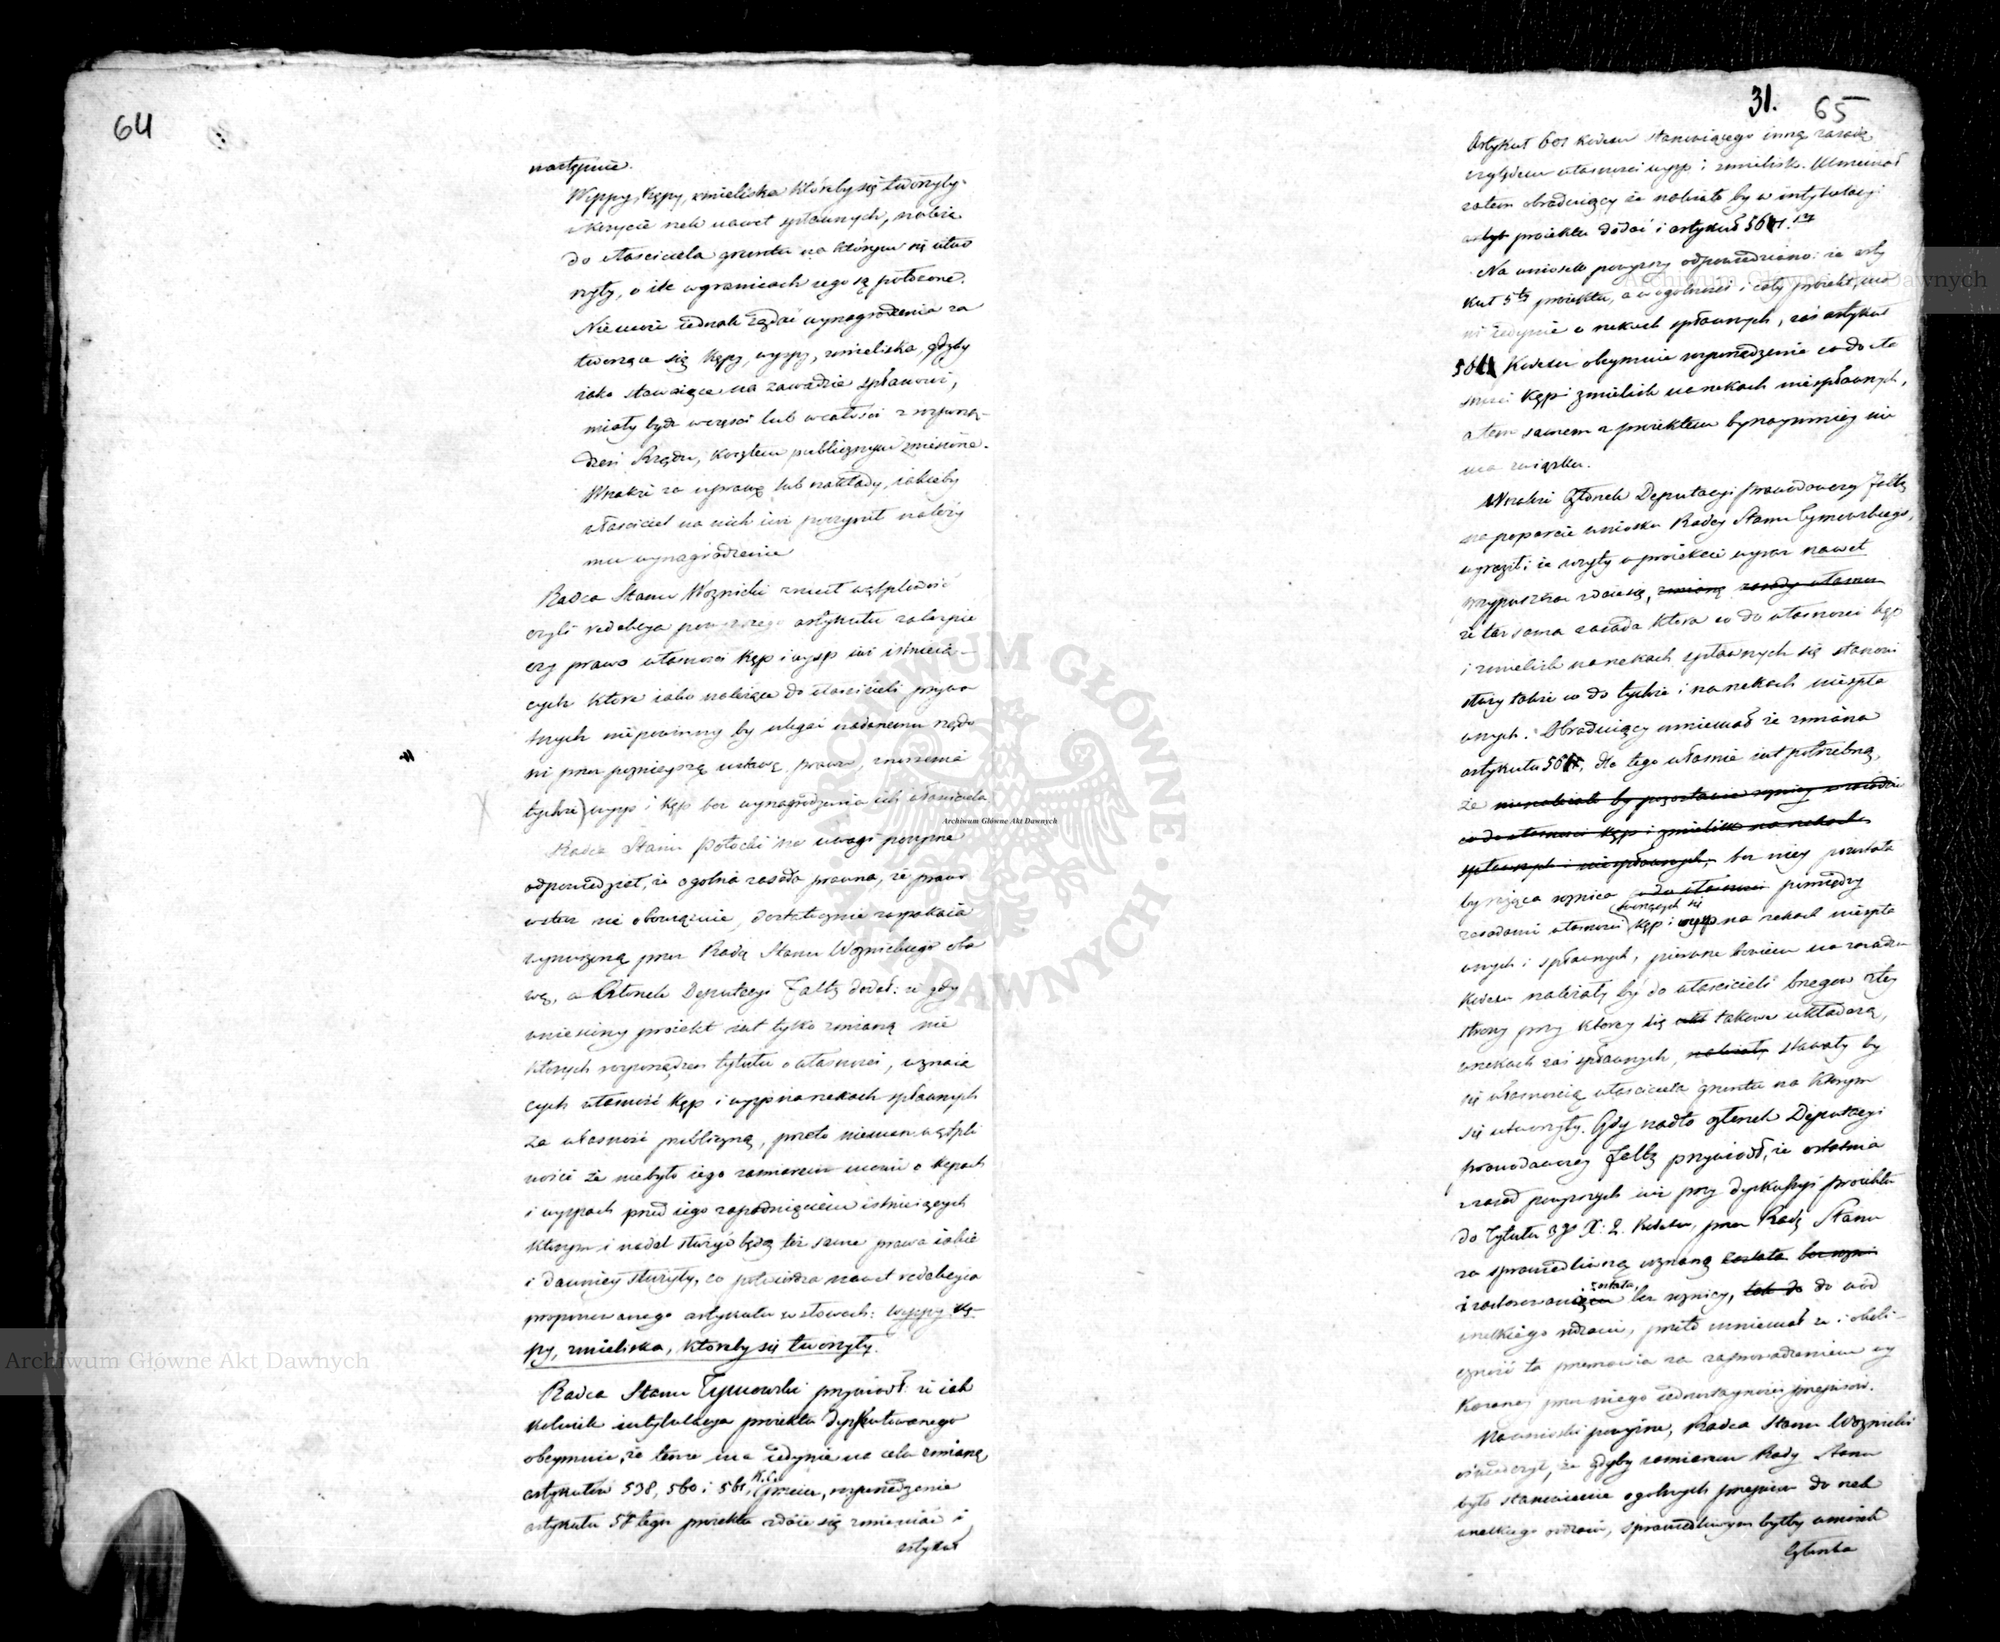 64
następnie.
Wyspy, kępy, zmieliska któreby się tworzyły
w korycie rzek nawet spławnych, należą
do właściciela gruntu na którym się utwo
rzyły, o ile w granicach iego są położone.
Niemoże iednak żądać wynagrodzenia za
tworzące się kępy, wyspy, zmieliska, gdyby
iako stawaiące na zawadzie spławowi,
miały bydź w części lub w całości z rozporzą-
dzeń Rządu, kosztem publicznym zniesione.
Wszakże za uprawę lub nakłady, iakieby
właściciel na nich iuż poczynił należy
mu wynagrodzenie
Radca Stanu Woznicki rzucił wątpliwość
czyli redakcya powyższego artykułu zabezpie
czy prawo własności kęp i wysp iuż istnieią-
cych które iako należące do właścicieli prywa
tnych niepowinny by ulegać nadanemu rządo
wi przez poznieyszą ustawę prawu, zniesienia
tychże wysp i kęp bez wynagrodzenia ich właściciela
Radca Stanu Potocki na uwagi powyższe
odpowiedział, że ogólna zasada prawna, że prawo
wstecz nie obowiązuie, dostatecznie zaspakaia
wynurzoną przez Radcę Stanu Woznickiego oba
wę, a Członek Deputacyi Faltz dodał: że gdy
wniesiony proiekt iest tylko zmianą nie
których rozporządzeń tytułu o własności, uznaią
cych własność kęp i wysp na rzekach spławnych
za własność publiczną, przeto niemasz wątpli
wości że niebyło iego zamiarem mówić o kępach
i wyspach przed iego zapadnięciem istnieiących
którym i nadal służyć będą też same prawa iakie
i dawniey służyły, co potwierdza nawet redakcya
proponowanego artykułu w słowach: wyspy kę-
py, zmieliska, któreby się tworzyły.
Radca Stanu Tymowski przywiódł: że iak
kolwiek intytulacya proiektu dyskutowanego
obeymuie, że tenże ma iedynie na celu zmianę
artykułów 538, 560 i 561, K.C. rozporządzenie
artykułu 5º tego proiektu zdaie się zmieniać i
artykuł
31. 65
Artykuł 601 kodexu stanowiącego inną zasadę
względem własności wysp i zmielisk. Mniemał
zatem obradujący że należało by w intytulacyi
proiektu dodać i artykuł 561.
Na wniosek powyższy odpowiedziano: że arty
kuł 5ty proiektu, a w ogólności i cały proiekt, mó
wi iedynie o rzekach spławnych, zaś artykuł
561 Kodexu obeymuie rozporządzenie co do wła
sności kęp i zmielisk na rzekach niespławnych,
a tem samem z proiektem bynaymniey nie
ma związku.
Wszakże Członek Deputacyi prawodawczey Faltz
na poparcie wniosku Radcy Stanu Tymowskiego,
wyraził: że użyty w proiekcie wyraz nawet
przypuszczać zdaie się, zmianę zasady własno
że taż sama zasada która co do własności kęp
i zmielisk na rzekach spławnych się stanowi
służy także co do tychże i na rzekach niespła
wnych. Obradujący mniemał że zmiana
artykułu 561, dla tego właśnie iest potrzebną,
że nienależało by pozostawić różnicy w zasadzie
co do własności kęp i zmielisk na rzekach
spławnych i niespławnych, bez niey pozostała
by rażąca różnica co do własności pomiędzy
zasadami własności tworzących się kęp i wysp na rzekach niespła
wnych i spławnych, pierwsze bowiem na zasadzie
Kodexu należały by do właścicieli brzegów z tey
strony przy którey się takowe układaią,
w rzekach zaś spławnych, należały stawały by
się własnością właściciela gruntu na którym
się utworzyły. Gdy nadto członek Deputacyi
prawodawczey Faltz przywiódł, że ostatnia
z zasad powyższych iuż przy dyskussyi proiektu
do Tytułu 2go X: 2. Kodexu, przez Radę Stanu
za sprawiedliwą uznaną została bez różni
i zastosowaną została, bez różnicy, tak do do wód
wszelkiego rodzaiu, przeto mniemał że i okoli-
czność ta przemawia za zaprowadzeniem wy
kazaney przez niego iednostayności przepisów.
Na wnioski powyższe, Radca Stanu Woznicki
oświadczył, że gdyby zamiarem Rady Stanu
było stanowienie ogólnych przepisów do rzek
wszelkiego rodzaiu, sprawiedliwym byłby wniosek
Członka
Archiwum Główne Akt Dawnych
Archiwum Główne Akt Dawnych
Archiwum Główne Akt Dawnych
ARCHIWUM GŁÓWNE AKT DAWNYCH